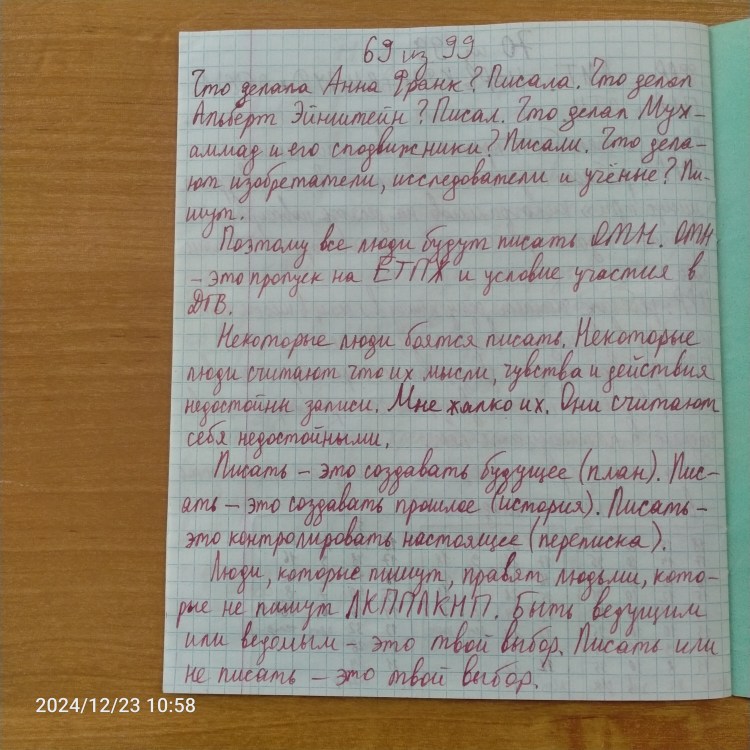 69 из 99
Что делала Анна Франк? Писала. Что делал
Альберт Эйнштейн? Писал. Что делал Мух-
аммад и его сподвижники? Писали. Что дела-
ют изобретатели, исследователи и учёные? Пи-
шут.
Поэтому все люди будут писать ОМН. ОМН
- это пропуск на ЕТПЖ и условие участия в
ДТВ.
Некоторые люди боятся писать. Некоторые
люди считают что их мысли, чувства и действия
недостойны записи. Мне жалко их. Они считают
себя недостойными.
Писать – это создавать будущее (план). Пис-
ать – это создавать прошлое (история). Писать –
это контролировать настоящее (переписка).
Люди, которые пишут, правят людьми, кото-
рые не пишут ЛКППЛКНП. Быть ведущим
или ведомым – это твой выбор. Писать или
не писать – это твой выбор.
2024/12/23 10:58